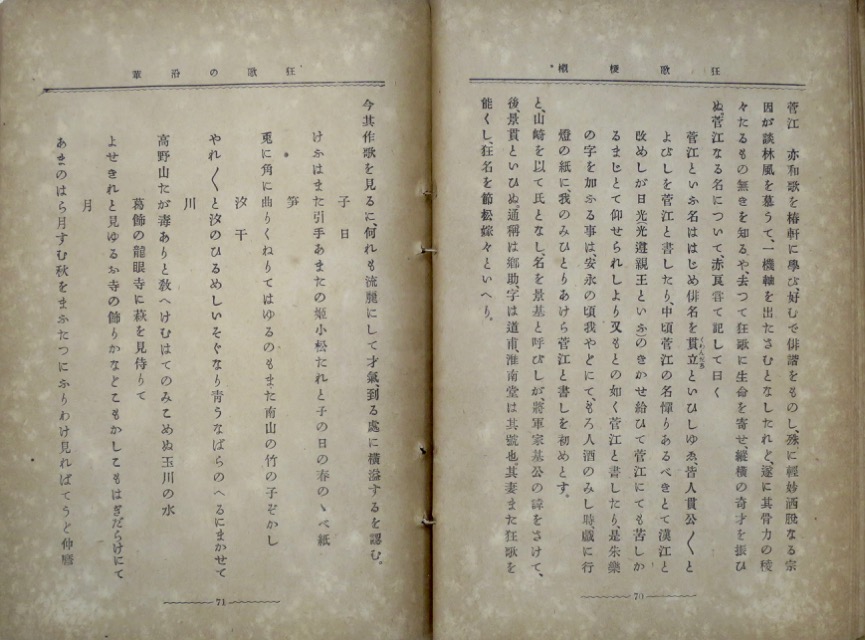 狂歌梗概
菅江　亦和歌を椿軒に學び、好むで俳諧をものし、殊に輕妙洒脱なる宗
因が談林風を慕うて、一機軸を出たさむとなしたれど、遂に其骨力の稜
々たるもの無きを知るや、去つて狂歌に生命を寄せ、縱横の奇才を振ひ
ぬ。菅江なる名について、赤良嘗て記して曰く
菅江といふ名ははじめ俳名を貫立といひしゆゑ皆人貫公〱と
くわんだち
よびしを菅江と書したり、中頃菅江の名憚りあるべきとて漢江と
改めしが日光准遵親王といふのきかせ給ひて菅江にても苦しか
るまじとて仰せられしより又もとの如く菅江と書したり、是朱樂
の字を加ふる事は、安永の頃我やどにて、もろ人酒のみし時、戯に行
燈の紙に、我のみひとりあけら菅江と書しを初めとす。
と、山崎を以て氏となし名を景基と呼びしが、將軍家基公の諱をさけて、
後、景貫といひぬ。通稱は郷助、字は道甫、淮南堂は其號也其妻また狂歌を
能くし、狂名を節松嫁々といへり。
70
狂歌の沿革
今其作歌を見るに、何れも流麗にして才氣、到る處に横溢するを認む。
子日
けふはまた引手あまたの姫小松たれと子の日の春のゝべ紙
笋
兎に角に曲りくねりてはゆるのもまた南山の竹の子ぞかし
汐干
やれ〱と汐のひるめしいそぐなり青うなばらのへるにまかせて
川
高野山たが毒ありと教へけむはてのみこめぬ玉川の水
葛飾の龍眼寺に萩を見侍りて
よせきれと見ゆるお寺の飾りかなどこもかしこもはぎだらけにて
月
あまのはら月すむ秋をまふたつにふりわけ見ればてうど仲麿
71